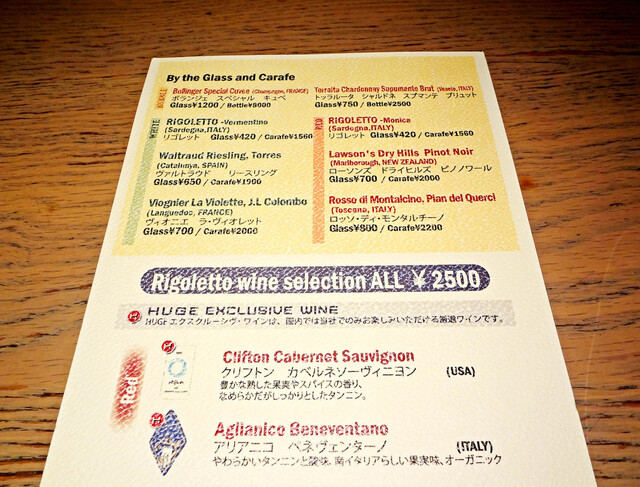 By the Glass and Carafe
Bollinger Special Cuvee (Champagne, FRANCE)
ボランジェ スペシャル キュベ
Glass¥1200 / Bottle¥8000
Torralta Chardonnay Supumante Brut (Veneto, ITALY)
トッラルータ シャルドネ スプマンテ ブリュット
Glass¥750 / Bottle¥2500
WHITE
RIGOLETTO -Vermentino
(Sardegna,ITALY)
リゴレット Glass¥420 / Carafe¥1560
Waltraud Riesling, Torres
(Catalunya, SPAIN)
ヴァルトラウド リースリング
Glass¥650 / Carafe¥1900
Viognier La Violette, J.L Colombo
(Languedoc, FRANCE)
ヴィオニエ ラ・ヴィオレット
Glass¥700 / Carafe¥2000
RED
RIGOLETTO -Monica
(Sardegna,ITALY)
リゴレット Glass¥420 / Carafe¥1560
Lawson's Dry Hills Pinot Noir
(Marlborough, NEW ZEALAND)
ローソンズ ドライヒルズ ピノノワール
Glass¥700 / Carafe¥2000
Rosso di Montalcino, Pian del Querci
(Toscana, ITALY)
ロッソ・ディ・モンタルチーノ
Glass¥800 / Carafe¥2200
Rigoletto wine selection ALL ¥2500
HUGE EXCLUSIVE WINE
HUGEエクスクルーシヴ・ワインは、国内では当社でのみお楽しみいただける厳選ワインです。
Red
Clifton Cabernet Sauvignon
クリフトン カベルネソー・ヴィニヨン (USA)
豊かな熟した果実やスパイスの香り、
なめらかだがしっかりとしたタンニン。
Aglianico Beneventano
アリアニコ ベネヴェンターノ (ITALY)
やわらかいタンニンと酸味。南イタリアらしい果実味、オーガニック